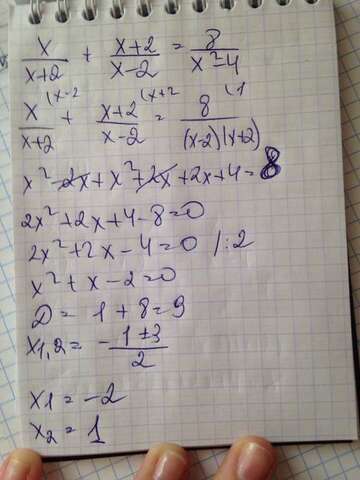 x/(x+2) + (x+2)/(x-2) = 8/(x²-4)
x/(x+2) (x-2 + (x+2)/(x-2) (x+2 = 8/((x-2)(x+2)) (1
x² - 2x + x² + 2x + 2x + 4 = 8
2x² + 2x + 4 - 8 = 0
2x² + 2x - 4 = 0 /:2
x² + x - 2 = 0
D = 1 + 8 = 9
x1,2 = - (1±3)/2
x1 = -2
x2 = 1